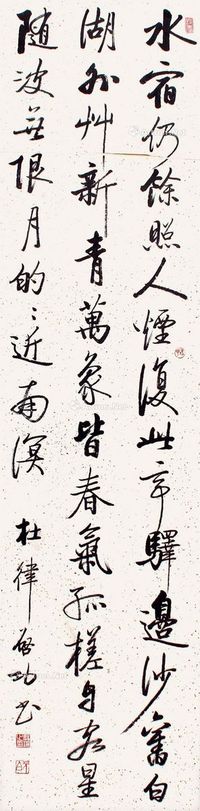 水宿仍餘照人煙復此亭驛邊沙舊白
湖外艸新青萬象皆春氣孤槎自客星
隨波無限月的〻近南溟
杜律 啟功書